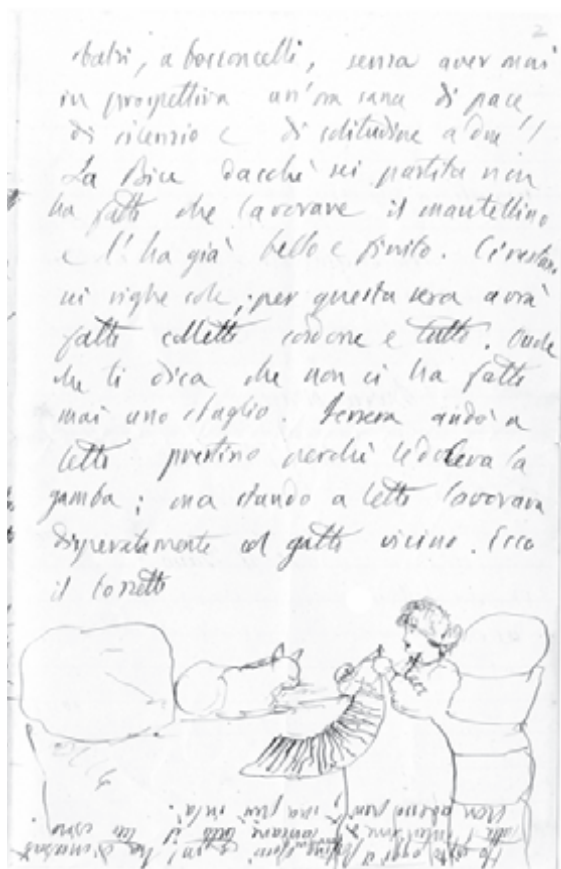 2
teatri, a bosconcelli, senza aver mai
in prospettiva un'ora sana di pace,
di silenzio e di solitudine a due!!
La Bice dacchè sei partita non
ha fatto che lavorare il mantellino
e l'ha già bello e finito. Ci restan
sei righe sole; per questa sera avrà
fatto colletto cordone e tutto. Vuole
che ti dica che non ci ha fatto
mai uno sbaglio. Iersera andò a
letto prestino perchè le doleva la
gamba; ma stando a letto lavorava
disperatamente col gatto vicino. Ecco
il bozzetto
Ho scritto oggi il
tutte lontane
Non adesso però è una più in là.